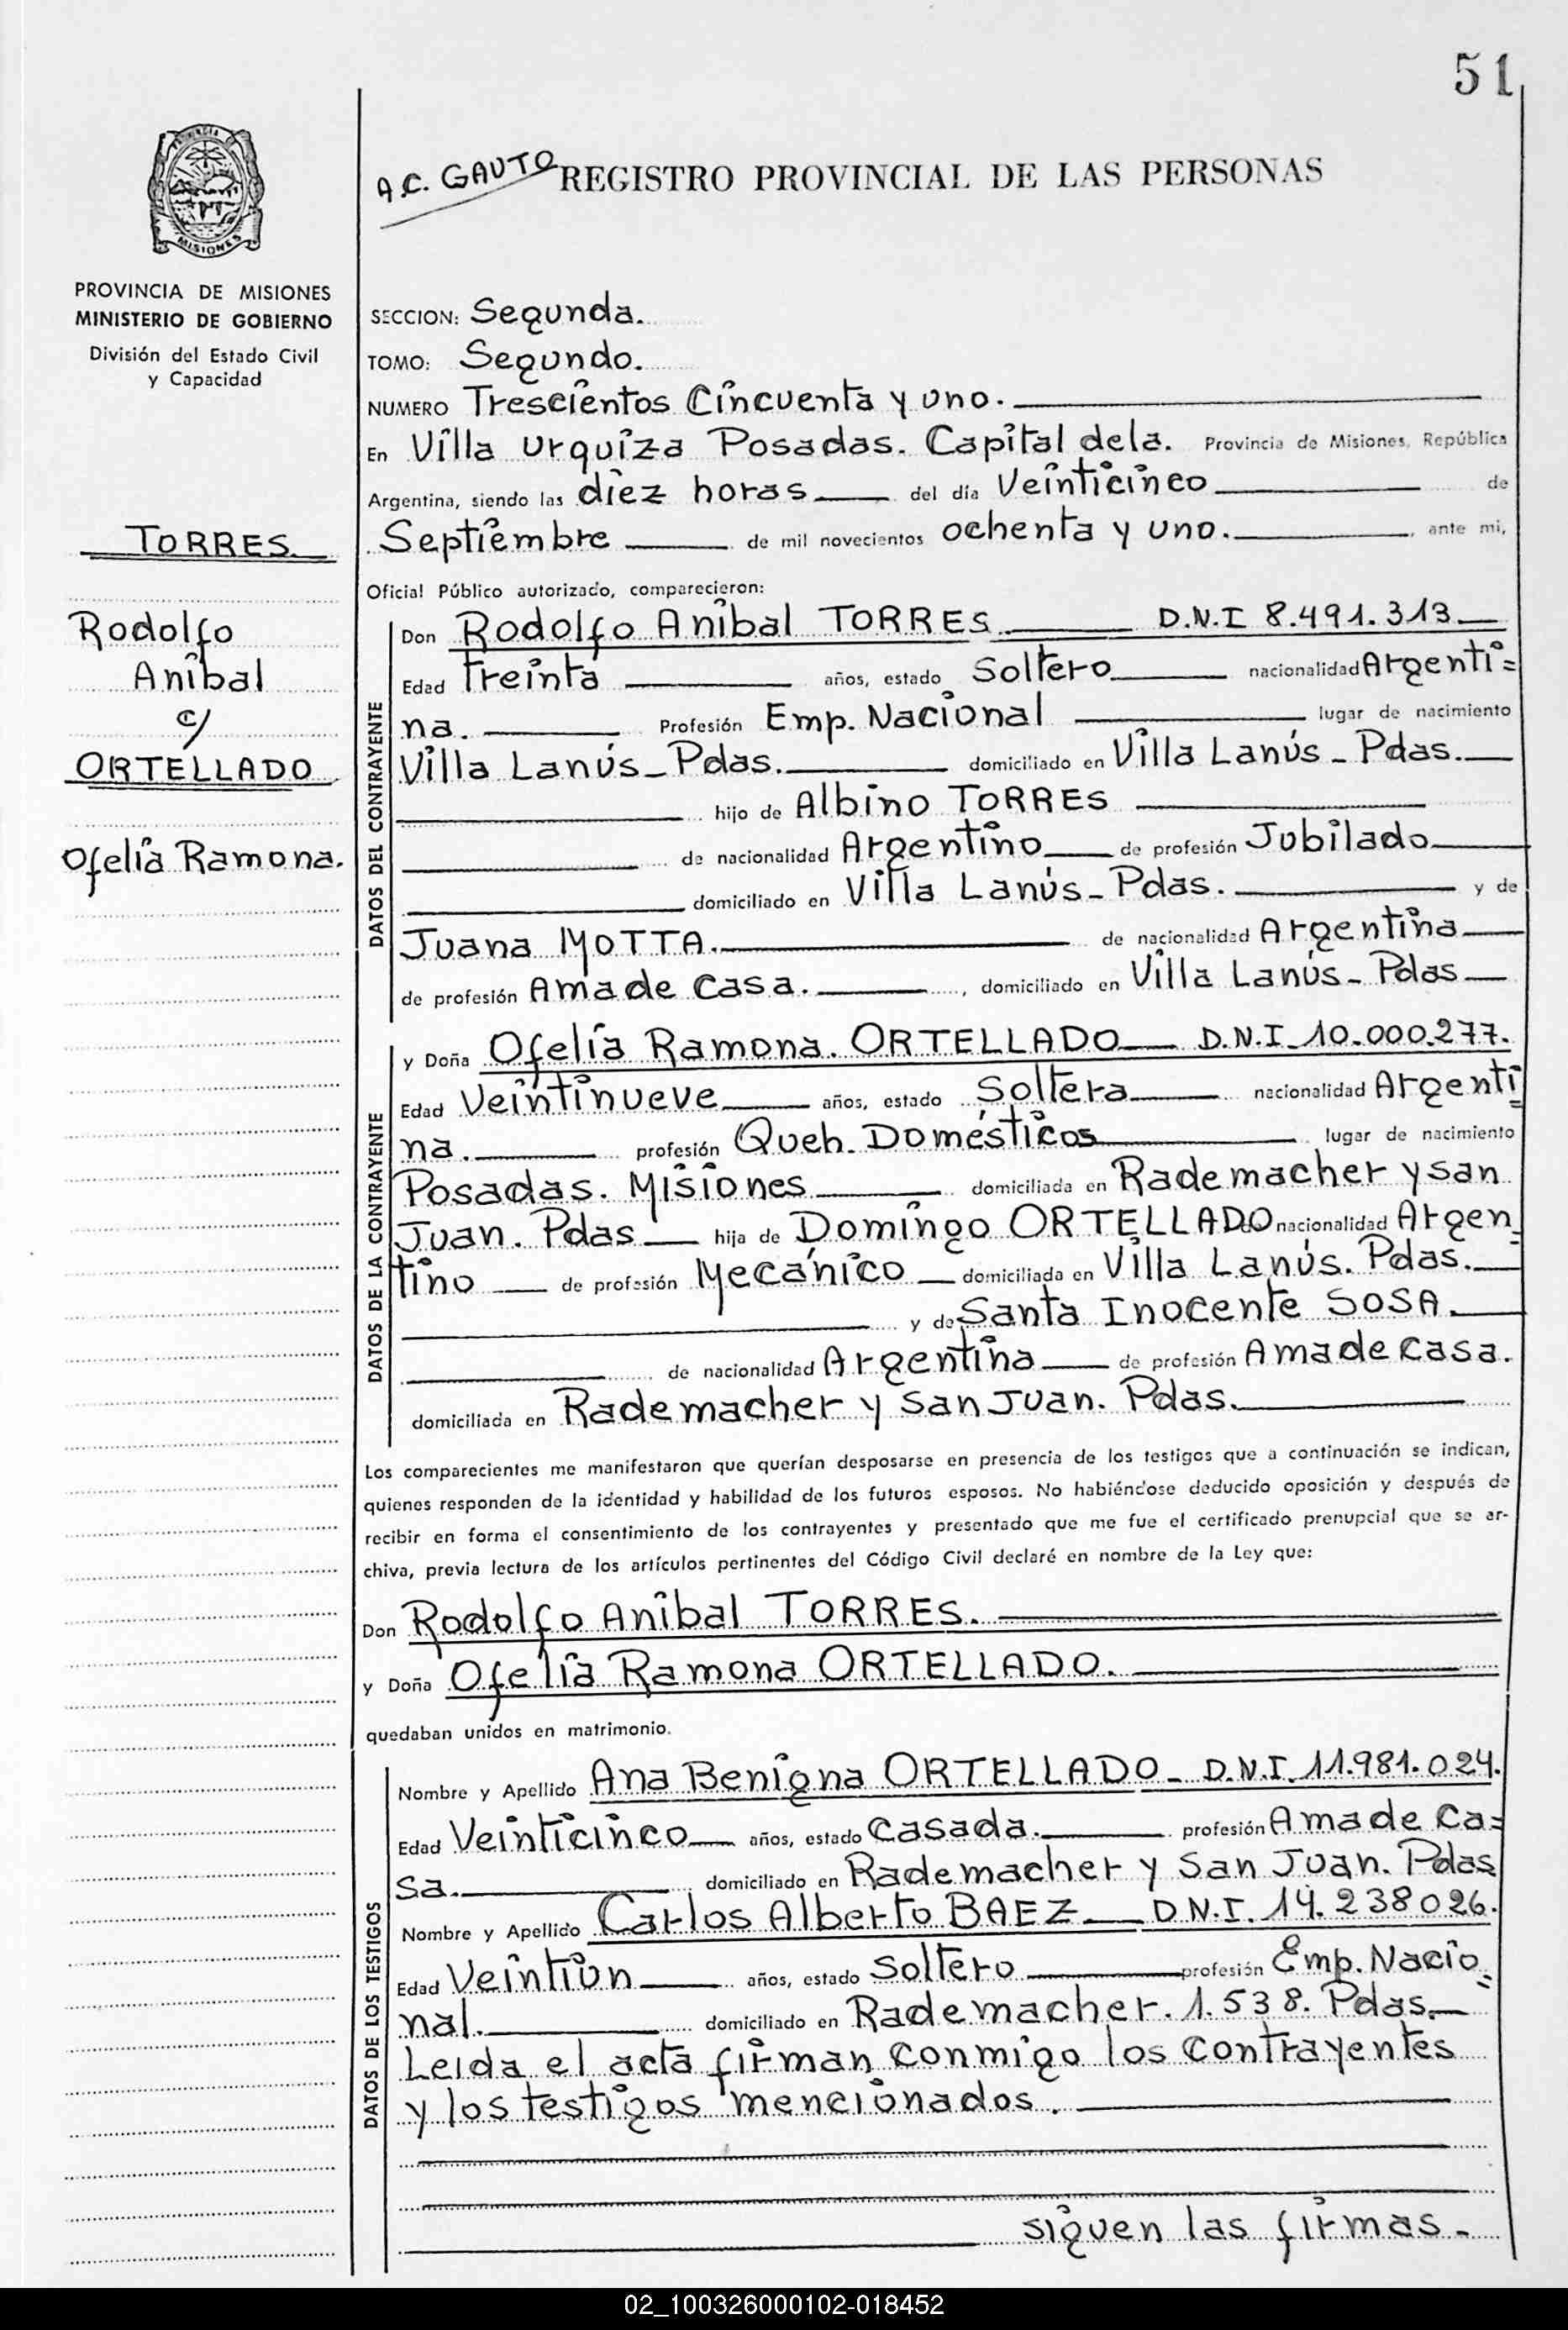 51
A.C. GAUTO
REGISTRO PROVINCIAL DE LAS PERSONAS
PROVINCIA DE MISIONES
MINISTERIO DE GOBIERNO
División del Estado Civil
y Capacidad
TORRES
Rodolfo
Anibal
c/
ORTELLADO
Ofelia Ramona.
SECCION: Segunda.
TOMO: Segundo.
NUMERO Trescientos Cincuenta y uno.
En Villa Urquiza Posadas. Capital de la. Provincia de Misiones, República
Argentina, siendo las diez horas del día Veinticinco de
Septiembre de mil novecientos ochenta y uno. , ante mi,
Oficial Público autorizado, comparecieron:
DATOS DEL CONTRAYENTE
Don Rodolfo Anibal TORRES D.N.I 8.491.313
Edad Treinta años, estado Soltero nacionalidad Argenti=
na. Profesión Emp. Nacional lugar de nacimiento
Villa Lanús - Pdas. domiciliado en Villa Lanús - Pdas.
hijo de Albino TORRES
de nacionalidad Argentino de profesión Jubilado
domiciliado en Villa Lanús - Pdas. y de
Juana MOTTA. de nacionalidad Argentina
de profesión Ama de Casa. , domiciliado en Villa Lanús - Pdas
DATOS DE LA CONTRAYENTE
y Doña Ofelia Ramona. ORTELLADO D.N.I 10.000.277.
Edad Veintinueve años, estado Soltera nacionalidad Argenti=
na. profesión Queh. Domésticos lugar de nacimiento
Posadas. Misiones domiciliada en Rademacher y san
Juan. Pdas hija de Domingo ORTELLADO nacionalidad Argen=
tino de profesión Mecánico domiciliada en Villa Lanús. Pdas.
y de Santa Inocente SOSA.
de nacionalidad Argentina de profesión Ama de casa.
domiciliada en Rademacher y San Juan. Pdas.
Los comparecientes me manifestaron que querían desposarse en presencia de los testigos que a continuación se indican,
quienes responden de la identidad y habilidad de los futuros esposos. No habiéndose deducido oposición y después de
recibir en forma el consentimiento de los contrayentes y presentado que me fue el certificado prenupcial que se ar-
chiva, previa lectura de los artículos pertinentes del Código Civil declaré en nombre de la Ley que:
Don Rodolfo Anibal TORRES.
y Doña Ofelia Ramona ORTELLADO.
quedaban unidos en matrimonio.
DATOS DE LOS TESTIGOS
Nombre y Apellido Ana Benigna ORTELLADO - D.N.I. 11.981.024.
Edad Veinticinco años, estado Casada. profesión Ama de Ca=
sa. domiciliado en Rademacher y San Juan. Pdas
Nombre y Apellido Carlos Alberto BAEZ D.N.I. 14.238026.
Edad Veintiún años, estado Soltero profesión Emp. Nacio=
nal. domiciliado en Rademacher. 1.538. Pdas.
Leida el acta firman conmigo los contrayentes
y los testigos mencionados.
siguen las firmas.
02_100326000102-018452